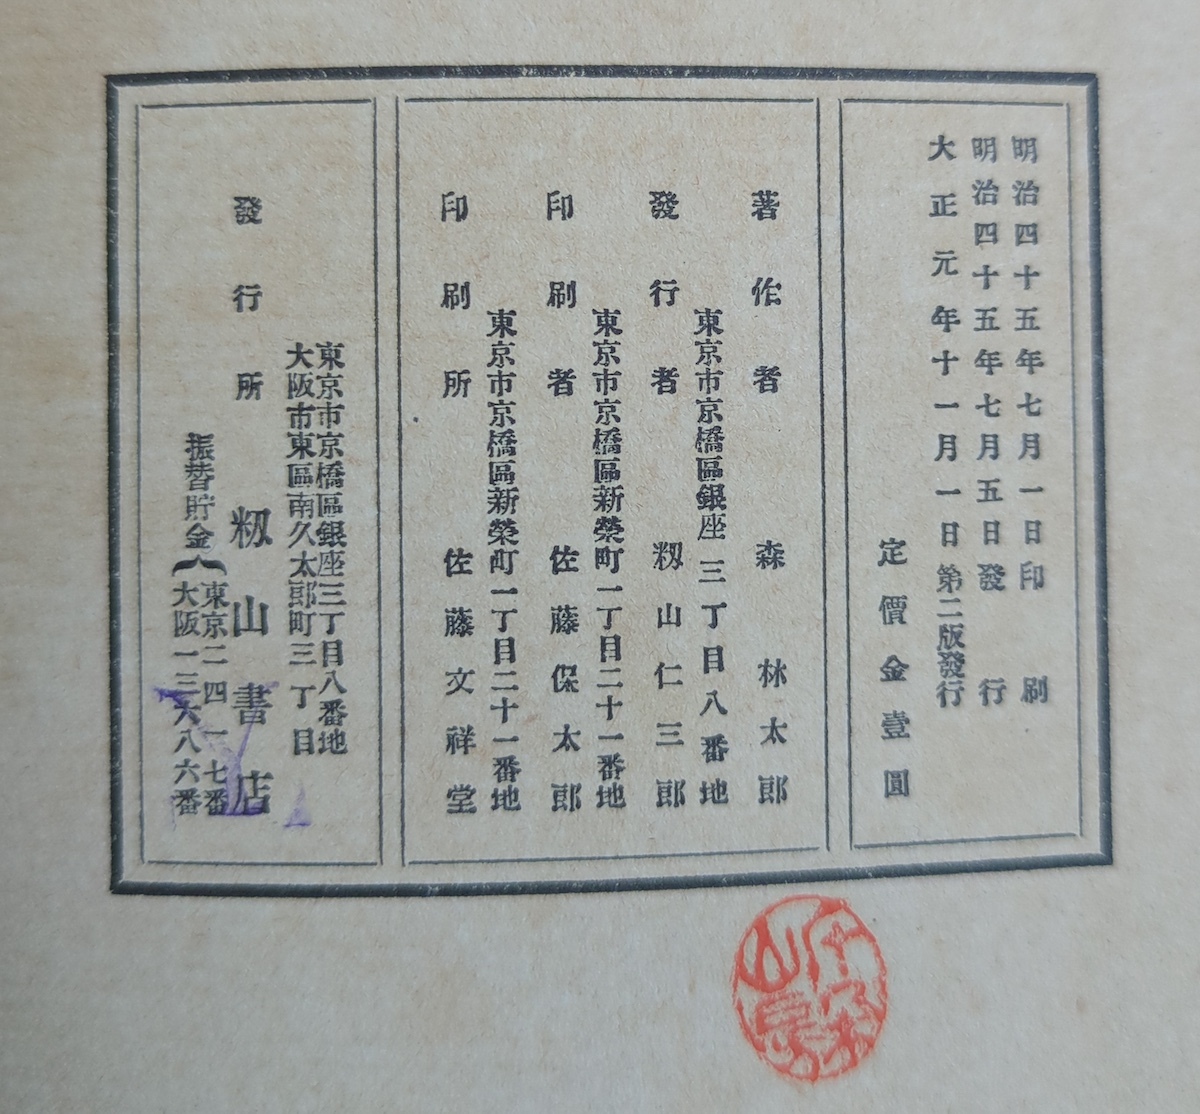 明治四十五年七月一日印刷
明治四十五年七月五日發行
大正元年十一月一日第二版發行
定價金壹圓
著作者 森林太郎
東京市京橋區銀座三丁目八番地
發行者 籾山仁三郎
東京市京橋區新榮町一丁目二十一番地
印刷者 佐藤保太郎
東京市京橋區新榮町一丁目二十一番地
印刷所 佐藤文祥堂
東京市京橋區銀座三丁目八番地
大阪市東區南久太郎町三丁目
發行所 籾山書店
振替貯金
東京二四一七番
大阪一三六八六番